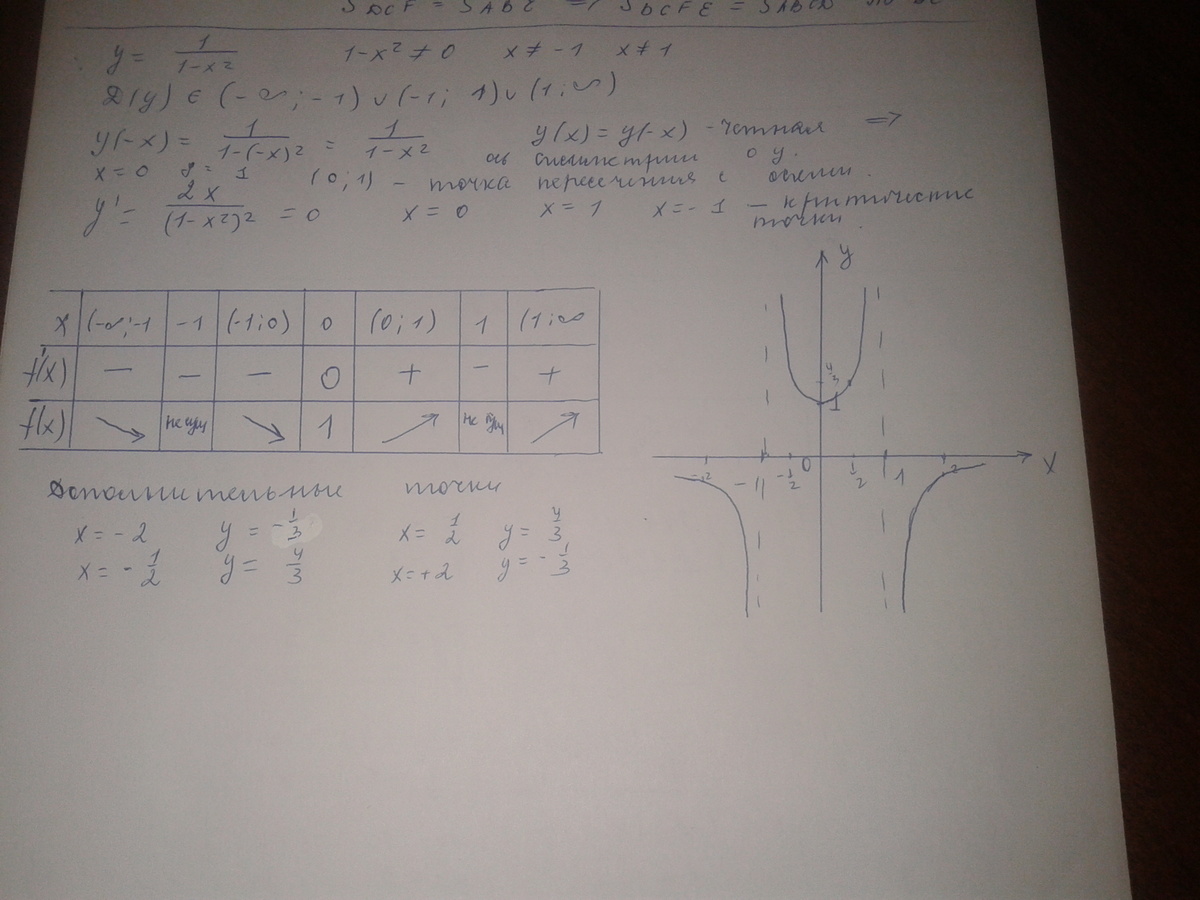 S DCF = S ABE => S DCFE = S ABCD
y = 1/(1-x²) 1-x² ≠ 0 x ≠ -1 x ≠ 1
D(y) ∈ (-∞; -1) ∪ (-1; 1) ∪ (1; ∞)
y(-x) = 1/(1-(-x)²) = 1/(1-x²) y(x) = y(-x) - четная =>
ось симметрии оy.
x = 0 y = 1 (0; 1) - точка пересечения с осями.
y' = 2x/(1-x²)² = 0 x = 0 x = 1 x = -1 - критические
точки.
x (-∞; -1 -1 (-1; 0) 0 (0; 1) 1 (1; ∞
f'(x) - - - 0 + - +
f(x) ↘ не сущ ↘ 1 ↗ не сущ ↗
y
4/3
1
-2 -1 -1/2 0 1/2 1 2 x
Дополнительные точки
x = -2 y = -1/3 x = 1/2 y = 4/3
x = -1/2 y = 4/3 x = +2 y = -1/3